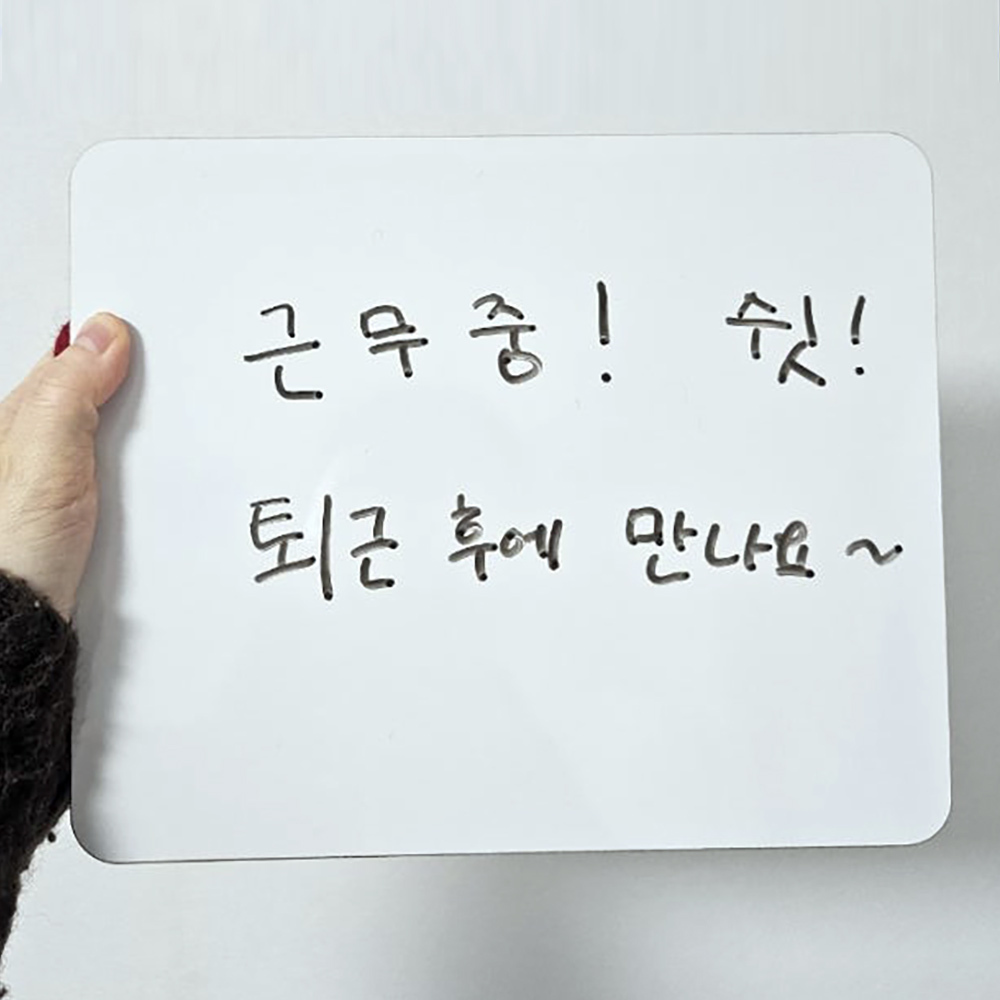 근무중! 쉿!
퇴근 후에 만나요~